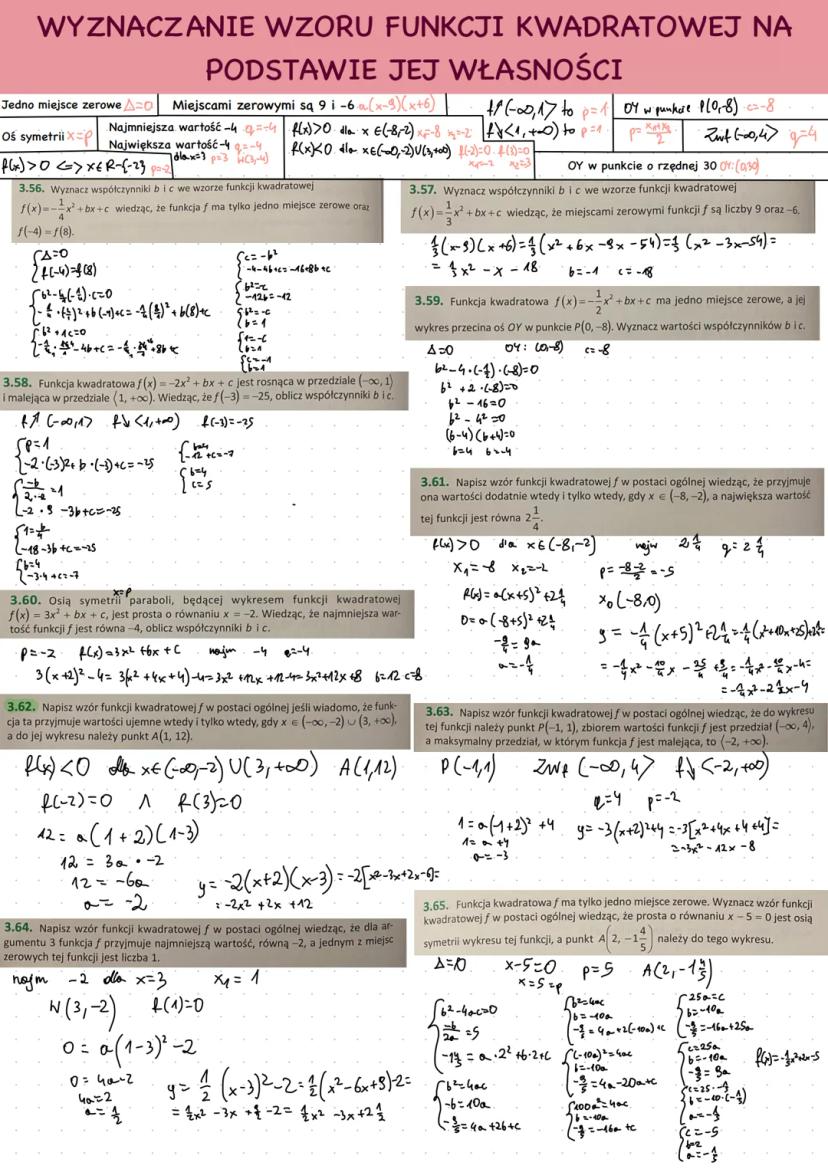 WYZNACZANIE WZORU FUNKCJI KWADRATOWEJ NA
PODSTAWIE JEJ WŁASNOŚCI
Jedno miejsce zerowe Δ=0
Miejscami zerowymi są 9 i -6 a(x-9)(x+6)
f↗(-∞,1> to p=1
f↘<1,+∞) to p=1
OY w punkcie P(0,-8) c=-8
Oś symetrii x=p
Najmniejsza wartość -4 q=-4
Największa wartość -4 q=-4
dla x=3 p=3 W(3,-4)
f(x)>0 dla x∈(-8,-2) x₁=-8 x₂=-2
f(x)<0 dla x∈(-∞,-2)∪(3,+∞) f(-2)=0 f(3)=0
x₁=-2 x₂=3
p=x₁+x₂/2
Zwf (-∞,4> q=4
f(x)>0 <=> x∈R-{-2} p=-2
OY w punkcie o rzędnej 30 OY:(0,30)
3.56. Wyznacz współczynniki b i c we wzorze funkcji kwadratowej
f(x)=-1/4x²+bx+c wiedząc, że funkcja f ma tylko jedno miejsce zerowe oraz
f(-4)=f(8).
Δ=0
f(-4)=f(8)
b²-4(-1/4)·c=0
b²+1c=0
c=-b²
-4-4b+c=-16+8b+c
-12b=-12
b=1
c=-1
b=1
3.57. Wyznacz współczynniki b i c we wzorze funkcji kwadratowej
f(x)=1/3x²+bx+c wiedząc, że miejscami zerowymi funkcji f są liczby 9 oraz -6.
1/3(x-9)(x+6)=1/3(x²+6x-9x-54)=1/3(x²-3x-54)=
=1/3x²-x-18 b=-1 c=-18
3.59. Funkcja kwadratowa f(x)=-1/2x²+bx+c ma jedno miejsce zerowe, a jej
wykres przecina oś OY w punkcie P(0, -8). Wyznacz wartości współczynników b i c.
Δ=0 OY: (0,-8) c=-8
b²-4·(-1/2)·(-8)=0
b²+2·(-8)=0
b²-16=0
b²-4²=0
(b-4)(b+4)=0
b=4 b=-4
3.58. Funkcja kwadratowa f(x) = -2x² + bx + c jest rosnąca w przedziale (-∞, 1⟩
i malejąca w przedziale ⟨1, +∞). Wiedząc, że f(-3) = -25, oblicz współczynniki b i c.
f↗(-∞,1> f↘<1,+∞) f(-3)=-25
p=1
-2·(-3)²+b·(-3)+c=-25
-b/2·-2=1
-2·9-3b+c=-25
1=b/4
-18-3b+c=-25
b=4
-3·4+c=-7
b=4
-12+c=-7
b=4
c=5
3.61. Napisz wzór funkcji kwadratowej f w postaci ogólnej wiedząc, że przyjmuje
ona wartości dodatnie wtedy i tylko wtedy, gdy x ∈ (-8, -2), a największa wartość
tej funkcji jest równa 2 1/4.
f(x)>0 dla x∈(-8,-2) najw 2 1/4 q=2 1/4
x₁=-8 x₂=-2 p=-8-2/2=-5
f(x)=a(x+5)²+2 1/4 x₀(-8,0)
0=a(-8+5)²+2 1/4
-9/4=9a
a=-1/4
y=-1/4(x+5)²+2 1/4=-1/4(x²+10x+25)+2 1/4=
=-1/4x²-10/4x-25/4+9/4=-1/4x²-10/4x-4=
=-1/4x²-2 1/2x-4
x=p
3.60. Osią symetrii paraboli, będącej wykresem funkcji kwadratowej
f(x) = 3x² + bx + c, jest prosta o równaniu x = -2. Wiedząc, że najmniejsza war-
tość funkcji f jest równa -4, oblicz współczynniki b i c.
p=-2 f(x)=3x²+bx+c najm -4 q=-4
3(x+2)²-4=3(x²+4x+4)-4=3x²+12x+12-4=3x²+12x+8 b=12 c=8
3.62. Napisz wzór funkcji kwadratowej f w postaci ogólnej jeśli wiadomo, że funk-
cja ta przyjmuje wartości ujemne wtedy i tylko wtedy, gdy x ∈ (-∞, -2) ∪ (3, +∞),
a do jej wykresu należy punkt A(1, 12).
f(x)<0 dla x∈(-∞,-2)∪(3,+∞) A(1,12)
f(-2)=0 ∧ f(3)=0
12=a(1+2)(1-3)
12=3a·-2
12=-6a
a=-2
y=-2(x+2)(x-3)=-2[x²-3x+2x-6]=
=-2x²+2x+12
3.63. Napisz wzór funkcji kwadratowej f w postaci ogólnej wiedząc, że do wykresu
tej funkcji należy punkt P(-1, 1), zbiorem wartości funkcji f jest przedział (-∞, 4⟩,
a maksymalny przedział, w którym funkcja f jest malejąca, to ⟨-2, +∞).
P(-1,1) ZWf (-∞,4> f↘<-2,+∞)
q=4 p=-2
1=a(-1+2)²+4
1=a+4
a=-3
y=-3(x+2)²+4=-3[x²+4x+4+4]=
=-3x²-12x-8
3.64. Napisz wzór funkcji kwadratowej f w postaci ogólnej wiedząc, że dla ar-
gumentu 3 funkcja f przyjmuje najmniejszą wartość, równą -2, a jednym z miejsc
zerowych tej funkcji jest liczba 1.
najm -2 dla x=3 x₁=1
W(3,-2) f(1)=0
0=a(1-3)²-2
0=4a-2
4a=2
a=1/2
y=1/2(x-3)²-2=1/2(x²-6x+9)-2=
=1/2x²-3x+9/2-2=1/2x²-3x+2 1/2
3.65. Funkcja kwadratowa f ma tylko jedno miejsce zerowe. Wyznacz wzór funkcji
kwadratowej f w postaci ogólnej wiedząc, że prosta o równaniu x - 5 = 0 jest osią
symetrii wykresu tej funkcji, a punkt A(2, -1 4/5) należy do tego wykresu.
Δ=0 x-5=0 p=5 A(2,-1 4/5)
x=5=p
b²-4ac=0
-b/2a=5
-1 4/5=a·2²+b·2+c
b²=4ac
-b=10a
-9/5=4a+2b+c
b²=4ac
b=-10a
-9/5=4a+2(-10a)+c
(-10a)²=4ac
b=-10a
-9/5=4a-20a+c
100a²=4ac
b=-10a
-9/5=-16a+c
25a=c
b=-10a
-9/5=-16a+25a
c=25a
b=-10a
-9/5=9a
c=25·-1/5
b=-10·(-1/5)
a=-1/5
c=-5
b=2
a=-1/5
f(x)=-1/5x²+2x-5